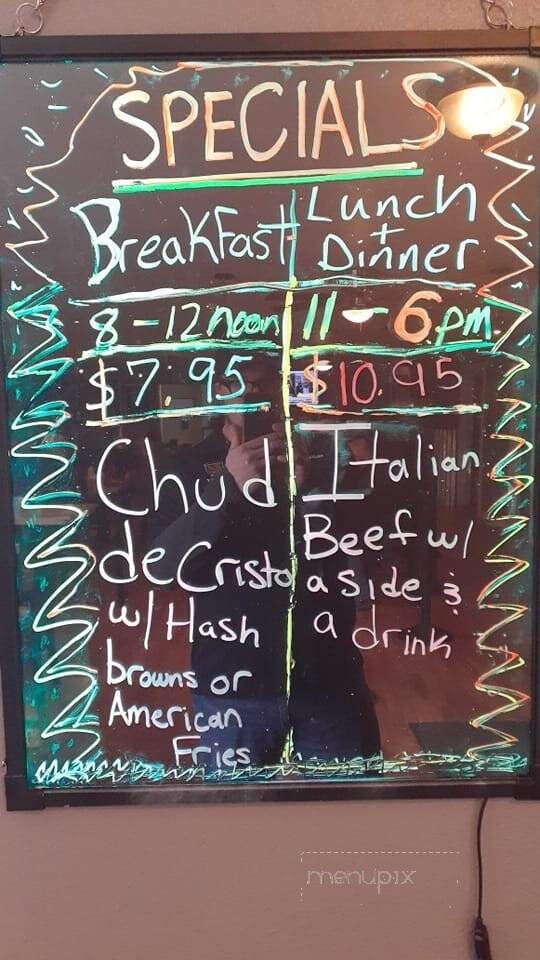 SPECIALS
Breakfast
8-12 noon
$7.95
Chud
de Cristo
w/ Hash
browns or
American
Fries
Lunch
+
Dinner
11-6pm
$10.95
Italian
Beef w/
a side &
a drink
menupix